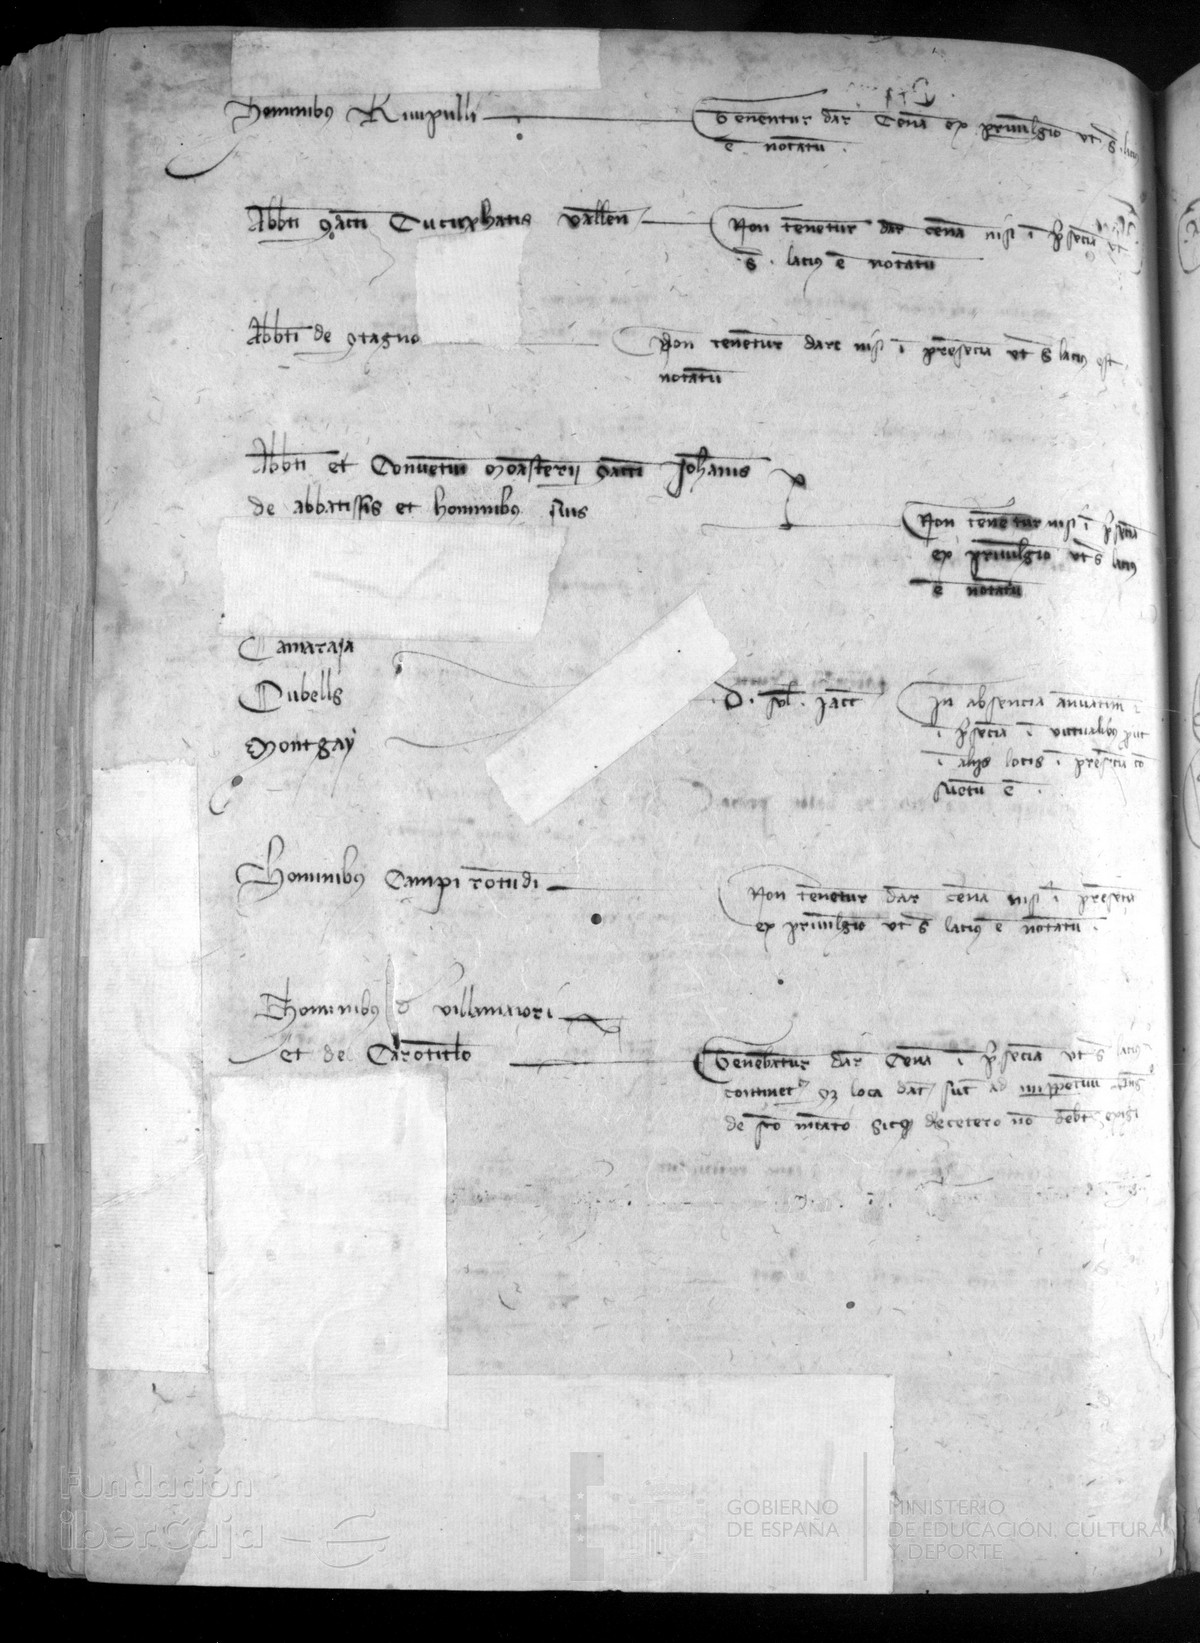 Hominibus Rivipulli
Tenentur dar Cena ex privilegio ut s. lacius
e notatu.
Abbti Sacti Cucuphatis Vallen
Non tenetur dar cena nisi i psecia ut
s. lacius e notatu
Abbti de Stagno
Non tenetur dare nisi i presecia ut s lacius est
notatu
Abbti et Convetui Monasterii Sacti Johanis
de abbatissis et hominibus suis
Non tenetur nisi i psecia
ex privilegio ut s lacius
e notatu
Camarasa
Cubells
Montgay
.D. sol. Jacc
In absencia annuatim
i psecia i victualibus put
i alijs locis i presecia co
suetu e.
Hominibus Campi rotudi
Non tenetur dar cena nisi i presecia
ex privilegio ut s lacius e notatu.
Hominibus d villamaiori
et de Carotitlo
Tenebatur dar Cena i psecia ut s lacius
continet loca dat sut ad
de decetero no debt exigi
Fundación
iberCaja
GOBIERNO
DE ESPAÑA
MINISTERIO
DE EDUCACIÓN, CULTURA
Y DEPORTE